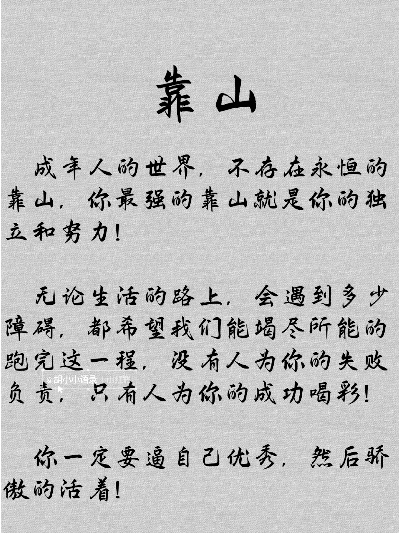 靠山
成年人的世界，不存在永恒的
靠山，你最强的靠山就是你的独
立和努力！
无论生活的路上，会遇到多少
障碍，都希望我们能竭尽所能的
跑完这一程，没有人为你的失败
负责；只有人为你的成功喝彩！
你一定要逼自己优秀，然后骄
傲的活着！